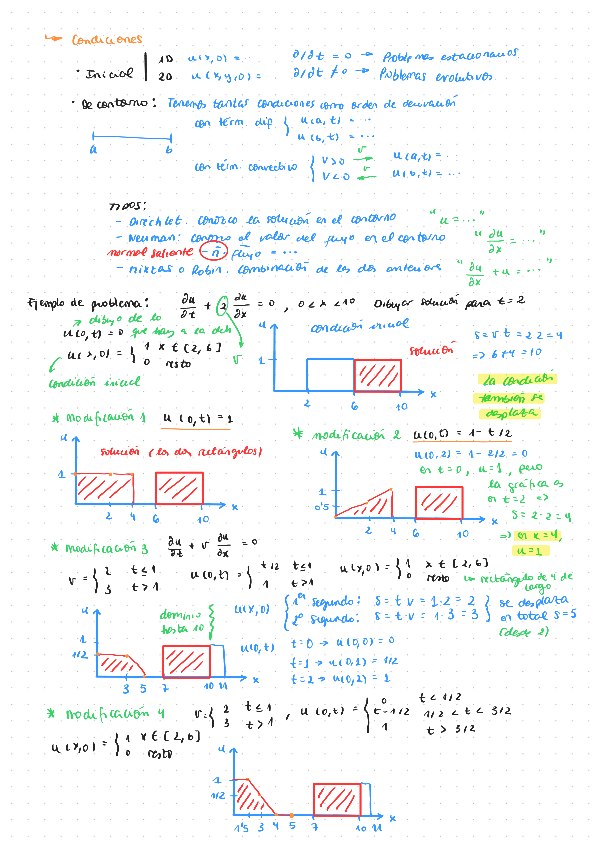 ↳ Condiciones
· Inicial | 1D. u(x,0) = ... ∂/∂t = 0 → Problemas estacionarios
2D. u(x,y,0) = ... ∂/∂t ≠ 0 → Problemas evolutivos
· De contorno: Tenemos tantas condiciones como orden de derivación
con térm. dif. { u(a,t) = ...
u(b,t) = ...
a b
con térm. convectivo { v>0 → v u(a,t) = ...
v<0 ← v u(b,t) = ...
TIPOS:
- Dirichlet. conozco la solución en el contorno "u = ..."
- Neuman: conozco el valor del flujo en el contorno "∂u/∂x = ..."
normal saliente - n̄ flujo = ...
- mixtas o Robin. Combinación de los dos anteriores "∂u/∂x + u = ..."
Ejemplo de problema: ∂u/∂t + 2 ∂u/∂x = 0, 0 < x < 10 Dibujar solución para t = 2
→ dibujo de lo que hay a la dch
u(0,t) = 0
u(x,0) = { 1 x ∈ [2,6]
0 resto
v
condición inicial
u condición inicial
solución
1
2 6 10 x
s = v·t = 2·2 = 4
=> 6+4 = 10
la condición
también se
desplaza
* modificación 1 u(0,t) = 1
u solución (los dos rectángulos)
1
2 4 6 10 x
* modificación 2 u(0,t) = 1 - t/2
u
1
0'5
2 4 6 10 x
u(0,2) = 1 - 2/2 = 0
en t = 0, u = 1, pero
la gráfica es
en t = 2 =>
s = 2·2 = 4
=> en x = 4,
u = 1
* modificación 3 ∂u/∂t + v ∂u/∂x = 0
v = { 2 t ≤ 1
3 t > 1
u(0,t) = { t/2 t ≤ 1
1 t > 1
u(x,0) = { 1 x ∈ [2,6]
0 resto
un rectángulo de 4 de
largo
u
1
1/2
3 5 7 10 11 x
dominio
hasta 10
u(x,0) { 1er segundo: s = t·v = 1·2 = 2
2º segundo: s = t·v = 1·3 = 3
} se desplaza
en total s = 5
(desde 2)
u(0,t) t=0 → u(0,0) = 0
t=1 → u(0,1) = 1/2
t=2 → u(0,2) = 1
* modificación 4 v = { 2 t ≤ 1
3 t > 1
, u(0,t) = { 0 t < 1/2
t - 1/2 1/2 < t < 3/2
1 t > 3/2
u(x,0) = { 1 x ∈ [2,6]
0 resto
u
1
1/2
1'5 3 4 5 7 10 11 x